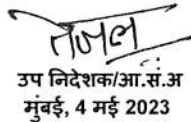 तेजल
उप निदेशक/आ.सं.अ
मुंबई, 4 मई 2023